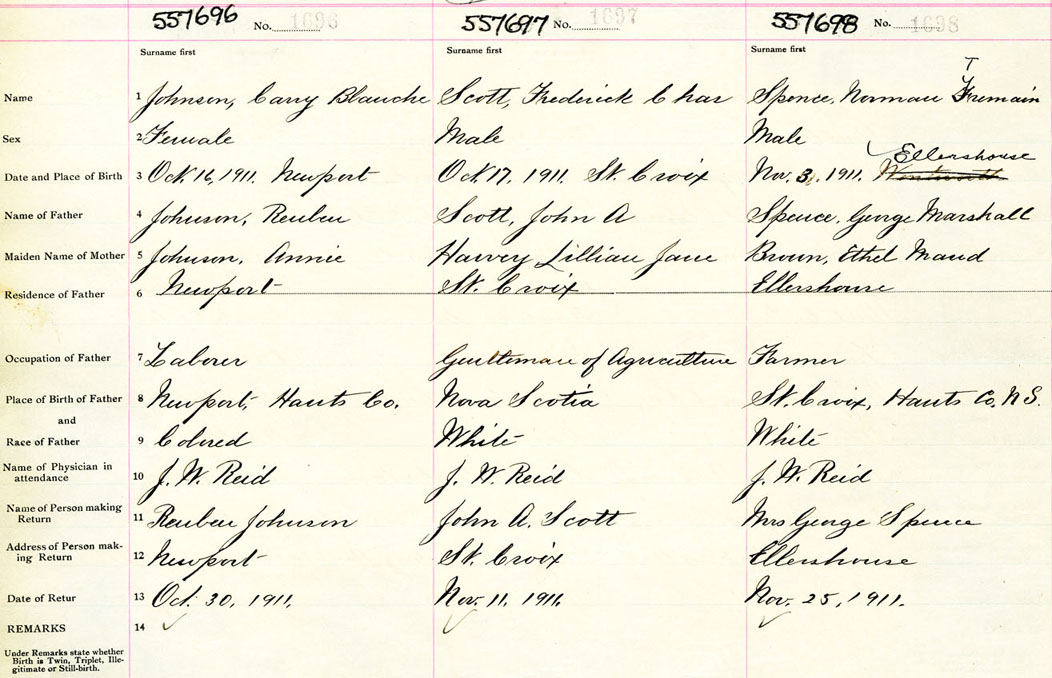 557696 No. 1696 557697 No. 1697 557698 No. 1698
Surname first Surname first Surname first
T
Name 1 Johnson, Carry Blanche Scott, Frederick Chas Spence, Norman Fremain
Sex 2 Female Male Male
Ellershouse
Date and Place of Birth 3 Oct. 16, 1911. Newport Oct. 17, 1911. St. Croix Nov. 3, 1911. Wentworth
Name of Father 4 Johnson, Reuben Scott, John A Spence, George Marshall
Maiden Name of Mother 5 Johnson, Annie Harvey Lillian Jane Brown, Ethel Maud
Residence of Father 6 Newport St. Croix Ellershouse
Occupation of Father 7 Laborer Gentleman of Agriculture Farmer
Place of Birth of Father 8 Newport, Hants Co. Nova Scotia St. Croix, Hants Co, N S.
and
Race of Father 9 Colored White White
Name of Physician in
attendance 10 J. W. Reid J. W. Reid J. W. Reid
Name of Person making
Return 11 Reuben Johnson John A. Scott Mrs George Spence
Address of Person mak-
ing Return 12 Newport St. Croix Ellershouse
Date of Retur 13 Oct. 30, 1911. Nov. 11, 1911. Nov. 25, 1911.
REMARKS 14
Under Remarks state whether
Birth is Twin, Triplet, Ille-
gitimate or Still-birth.